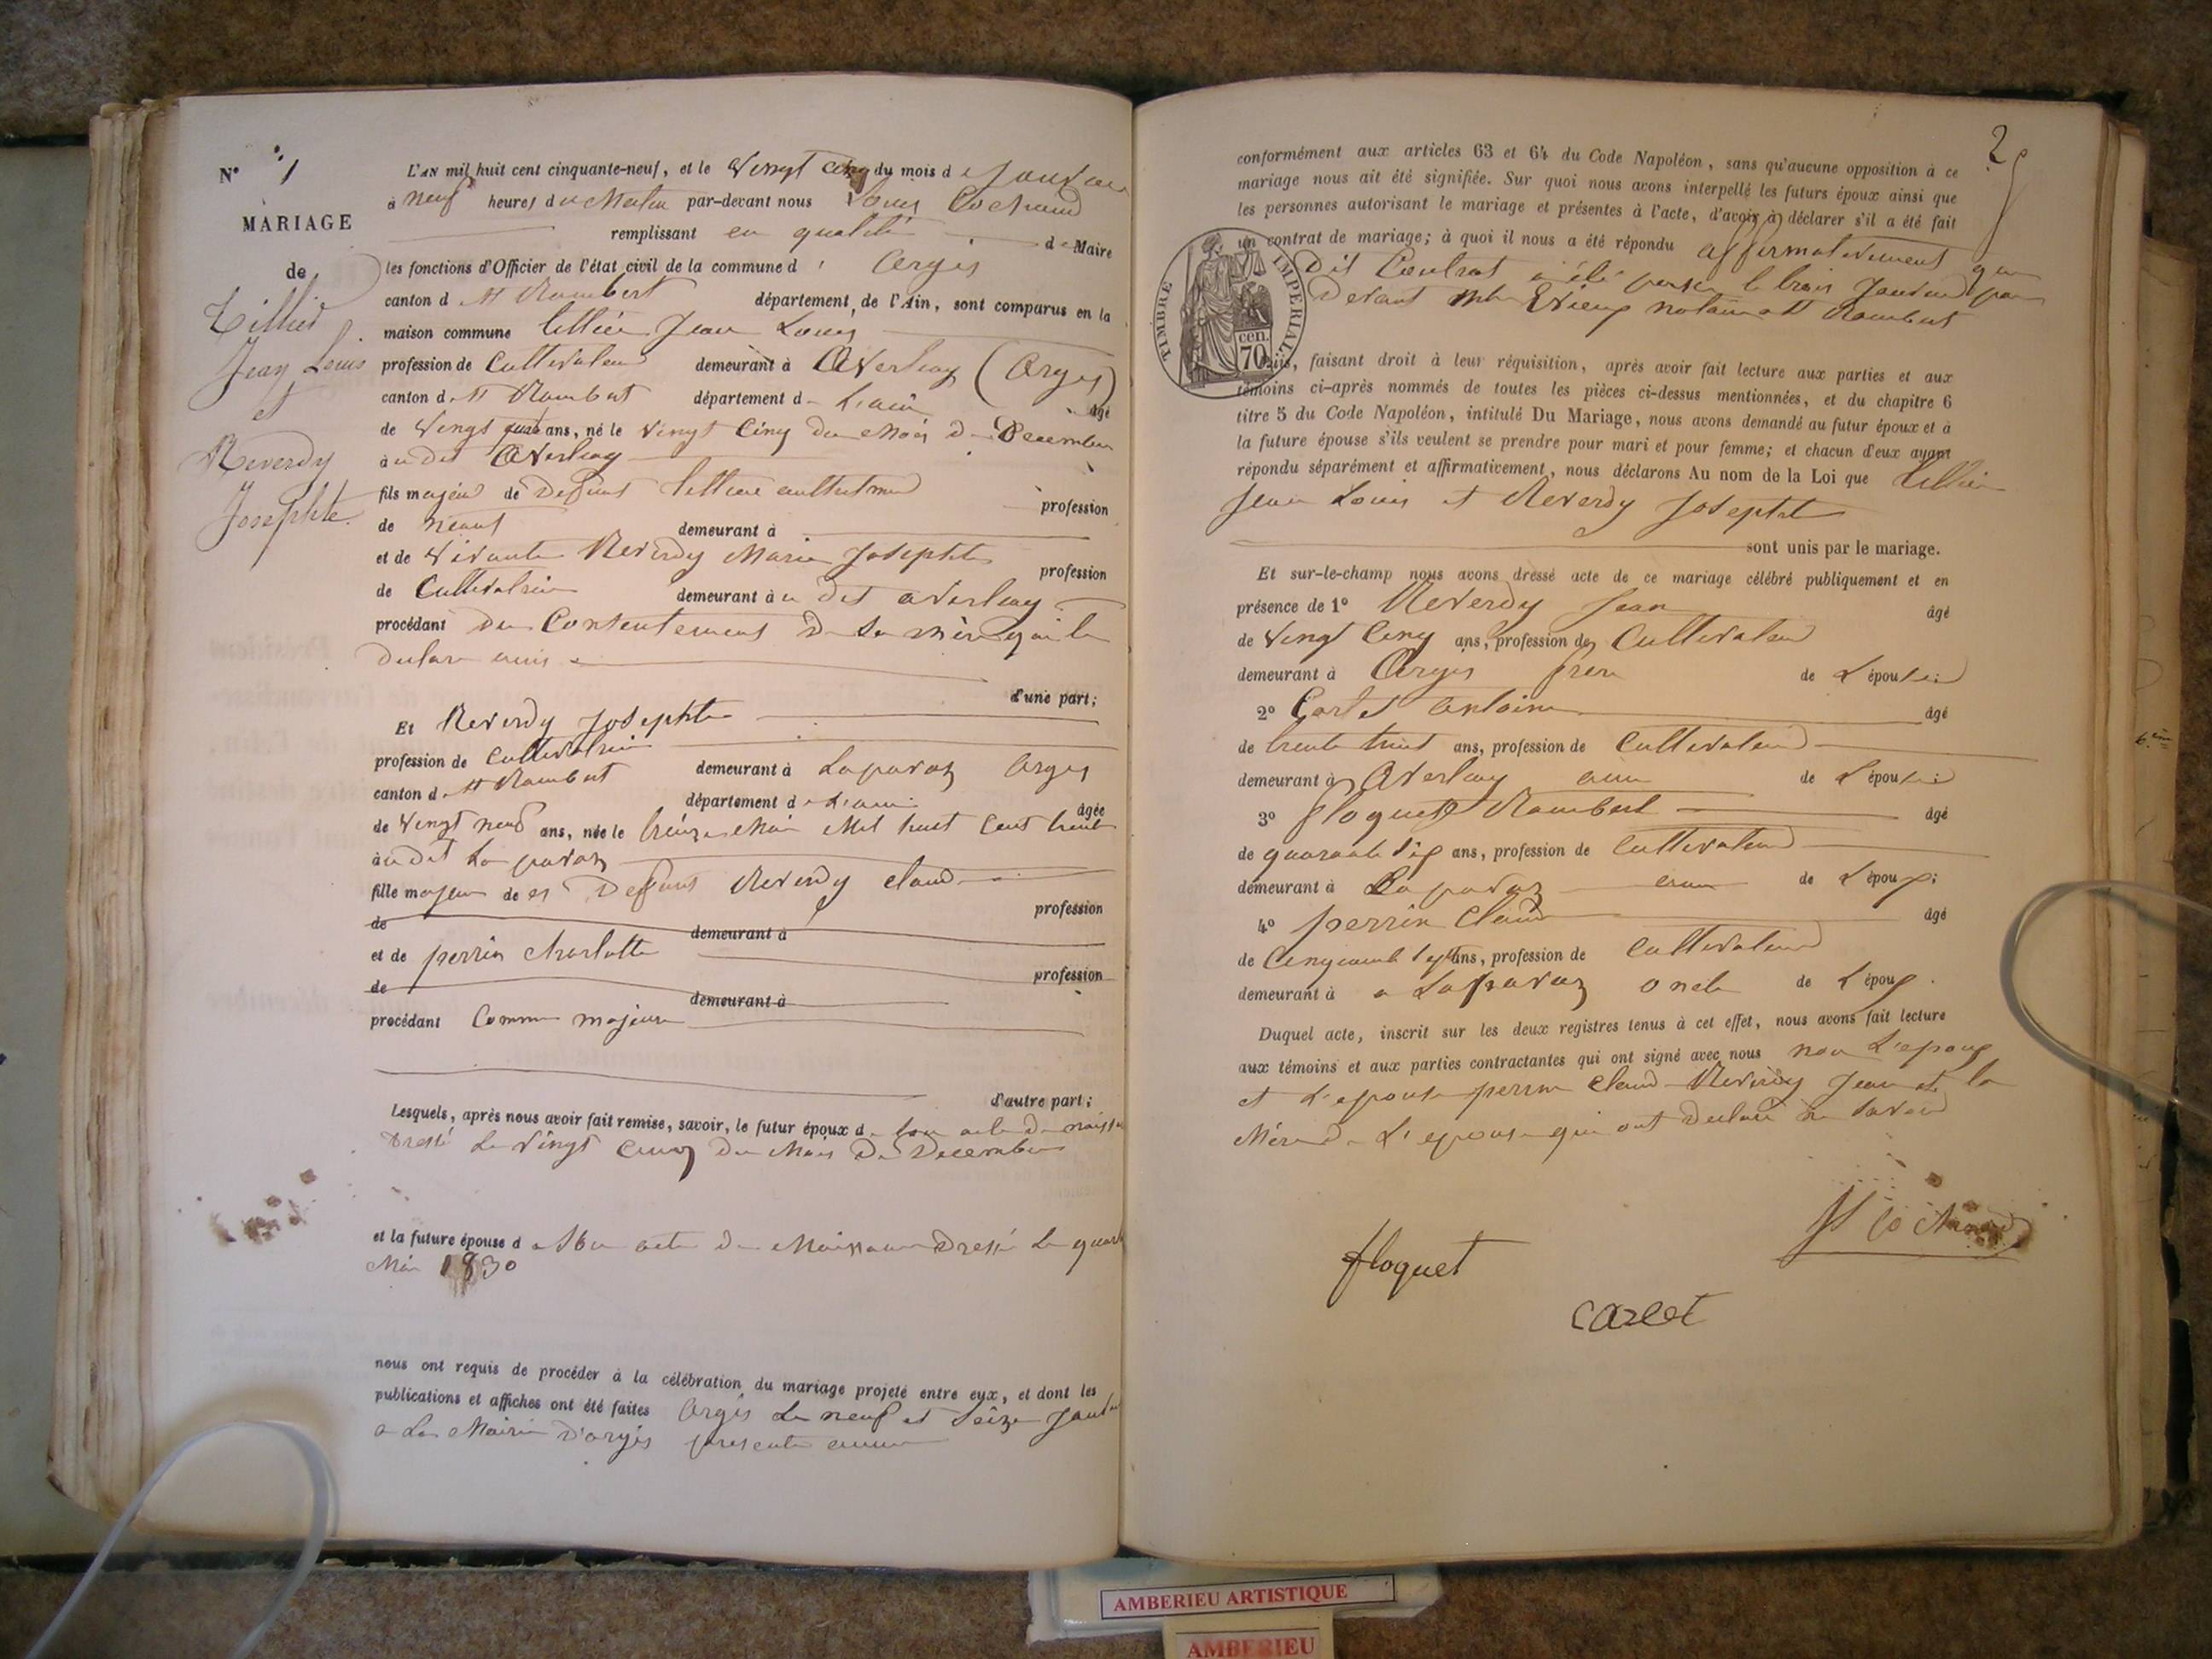 N° 1
MARIAGE
de
Tillier
Jean Louis
et
Reverdy
Josephte.
L'AN mil huit cent cinquante-neuf, et le Vingt cinq du mois d
à neuf heures du Matin par-devant nous Louis Cochand
remplissant en qualité de Maire
les fonctions d'Officier de l'état civil de la commune d' Argis
canton d St Rambert département de l'Ain, sont comparus en la
maison commune Jean Louis
profession de Cultivateur demeurant à Averliaz (Argis)
canton de St Rambert département de L'ain âgé
de Vingt ans, né le Vingt Cinq du Mois de Decembre
audit Averliaz
fils majeur de Defunt
profession
de néant demeurant à
et de Vivante Reverdy Marie Josephte
profession
de Cultivatrice demeurant audit Averliaz
procédant du Consentement de Sa mère qui le
d'une part;
Et Reverdy Josephte
profession de Cultivatrice
demeurant à Laparaz Argis
canton de St Rambert
département de L'ain
âgée
de Vingt neuf ans, née le Mai Mil huit Cent trente
audit La paraz
fille majeure de Defunt Reverdy Claude
profession
de demeurant à
et de perrin Charlotte
profession
de demeurant à
procédant Comme majeure
d'autre part;
Lesquels, après nous avoir fait remise, savoir, le futur époux de son acte de
Dressé Le Vingt Cinq Du Mois De Decembre
et la future épouse de Son acte de Naissance Dressé Le
Mai 1830
nous ont requis de procéder à la célébration du mariage projeté entre eux, et dont les
publications et affiches ont été faites Argis Le neuf et Seize
a La Mairie D'argis presente
2
conformément aux articles 63 et 64 du Code Napoléon, sans qu'aucune opposition à ce
mariage nous ait été signifiée. Sur quoi nous avons interpellé les futurs époux ainsi que
les personnes autorisant le mariage et présentes à l'acte, d'avoir à déclarer s'il a été fait
un contrat de mariage; à quoi il nous a été répondu affirmativement que
Dit Contrat a été passé le trois
Devant notaire St Rambert
TIMBRE IMPERIAL
70 cen.
Puis, faisant droit à leur réquisition, après avoir fait lecture aux parties et aux
témoins ci-après nommés de toutes les pièces ci-dessus mentionnées, et du chapitre 6
titre 5 du Code Napoléon, intitulé Du Mariage, nous avons demandé au futur époux et à
la future épouse s'ils veulent se prendre pour mari et pour femme; et chacun d'eux ayant
répondu séparément et affirmativement, nous déclarons Au nom de la Loi que
Jean Louis et Reverdy Josephte
sont unis par le mariage.
Et sur-le-champ nous avons dressé acte de ce mariage célébré publiquement et en
présence de 1° Reverdy Jean
âgé
de Vingt Cinq ans, profession de Cultivateur
demeurant à Argis frere de L'épouse;
2° Antoine âgé
de trente huit ans, profession de Cultivateur
demeurant à Averliaz ami de L'épouse;
3° floquet Rambert âgé
de quarante Six ans, profession de Cultivateur
demeurant à La paraz ami de L'époux;
4° perrin Claude âgé
de Cinquante ans, profession de Cultivateur
demeurant à a Laparaz oncle de L'époux.
Duquel acte, inscrit sur les deux registres tenus à cet effet, nous avons fait lecture
aux témoins et aux parties contractantes qui ont signé avec nous non L'epoux
et L'epouse perrin Claude Reverdy Jean et la
Mère de L'epouse qui ont Declaré ne Savoir
floquet
carlet
AMBERIEU ARTISTIQUE
AMBERIEU